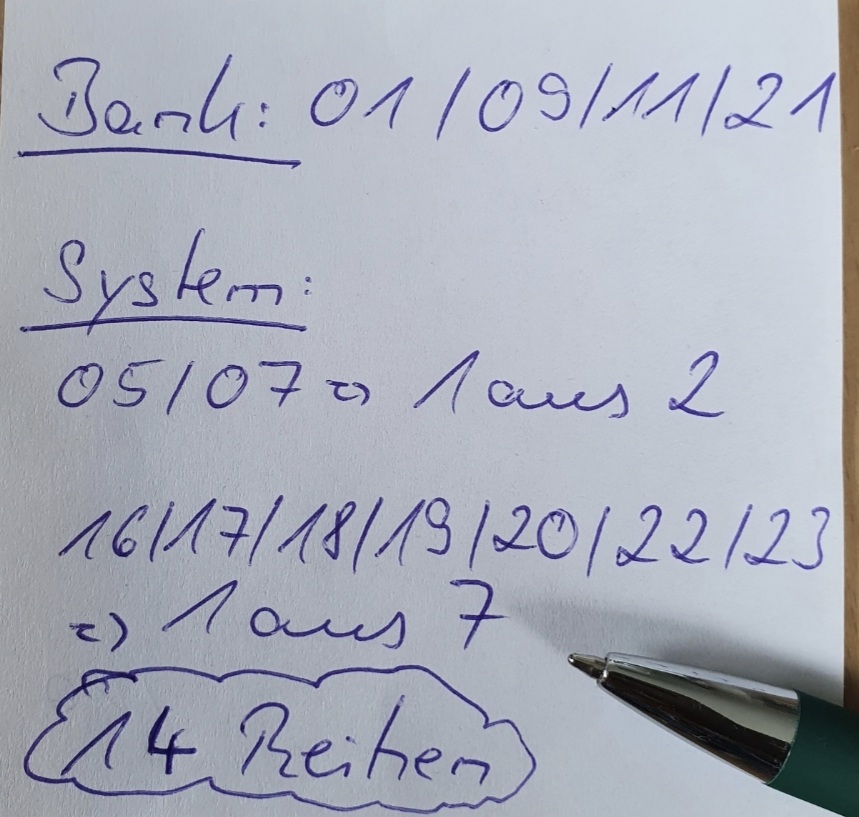 Bank: 01/09/11/21
System:
05/07 => 1 aus 2
16/17/18/19/20/22/23
=> 1 aus 7
14 Reihen